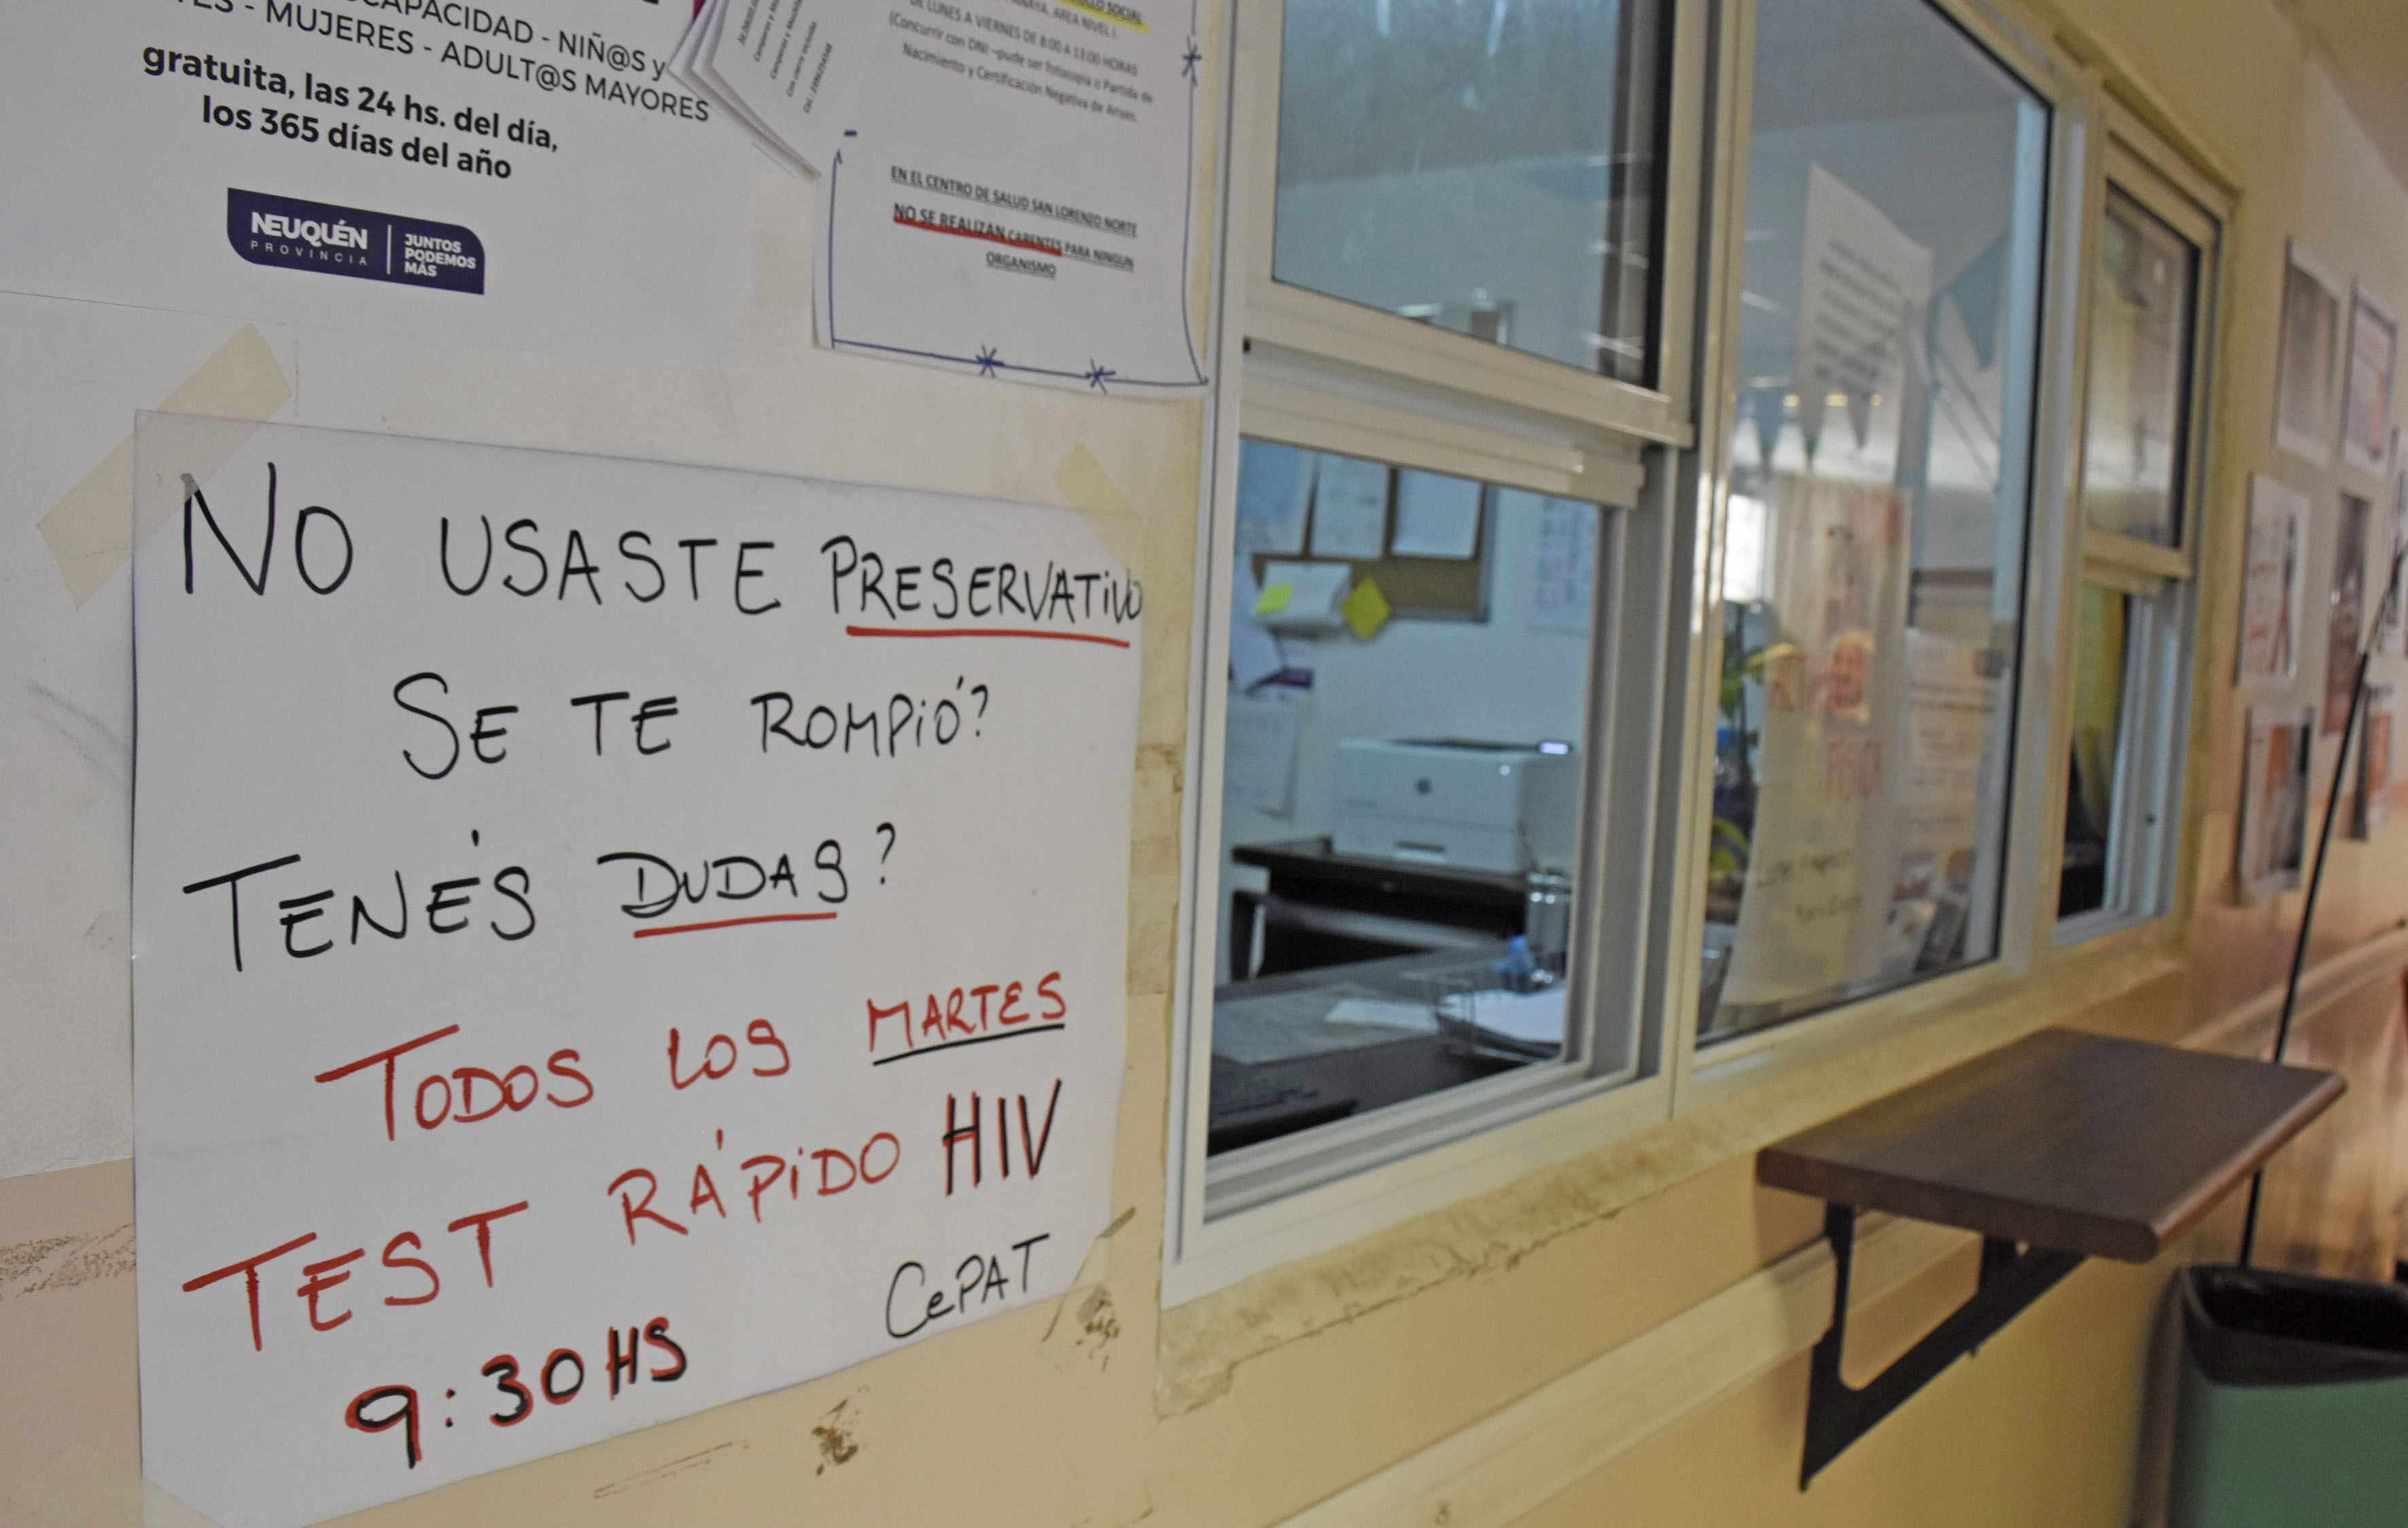 CAPACIDAD - NIÑ@S y
- MUJERES - ADULT@S MAYORES
gratuita, las 24 hs. del día,
los 365 días del año
NEUQUÉN
PROVINCIA
JUNTOS
PODEMOS
MÁS
SOCIAL
AREA NIVEL I.
DE LUNES A VIERNES DE 8:00 A 13:00 HORAS
(Concurrir con DNI –pude ser fotocopia o Partida de
Nacimiento y Certificación Negativa de Anses.
EN EL CENTRO DE SALUD SAN LORENZO NORTE
NO SE REALIZAN CARENTES PARA NINGUN
ORGANISMO
NO USASTE PRESERVATIVO
SE TE ROMPIÓ?
TENÉS DUDAS?
TODOS LOS MARTES
TEST RÁPIDO HIV
9:30 HS
CePAT